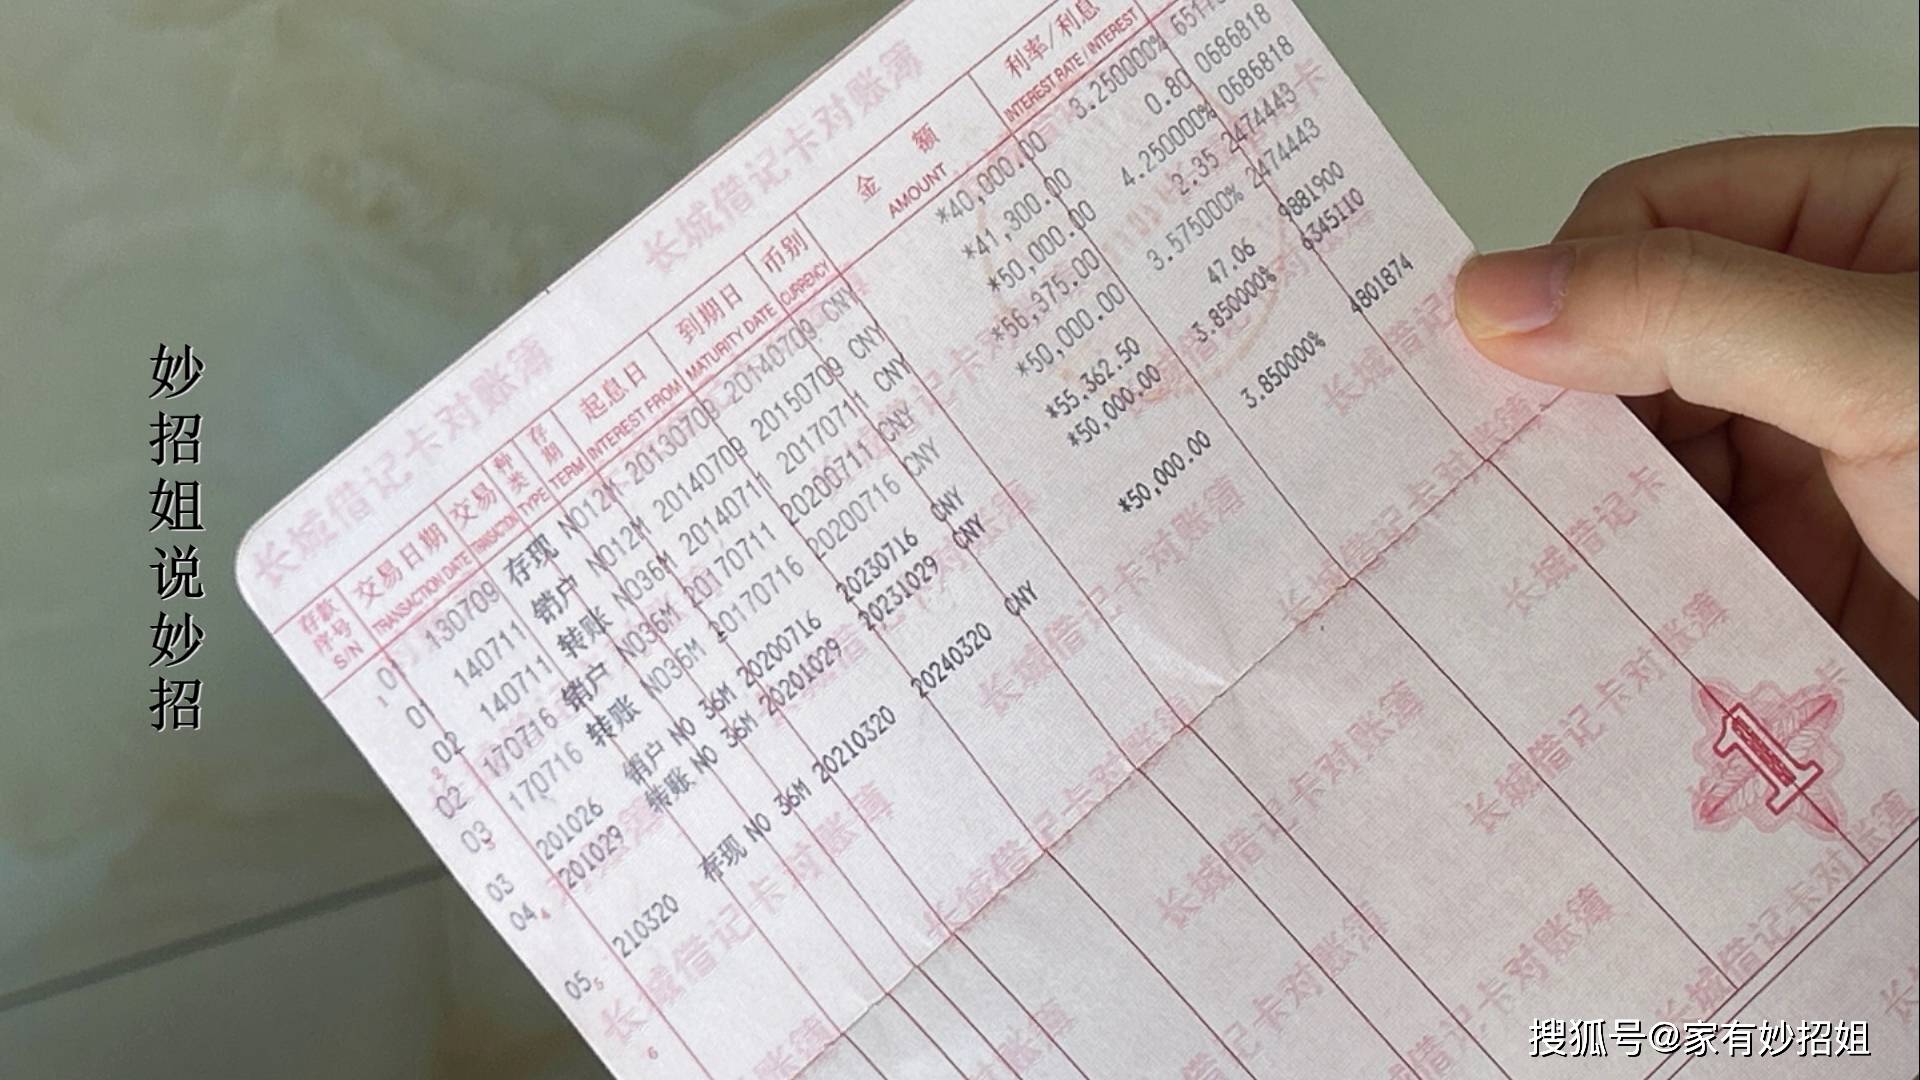 妙招姐说妙招
长城借记卡对账簿 长城借记卡对账簿
存款序号 交易日期 交易种类 存期 起息日 到期日 币别 金额 利率/利息
S/N TRANSACTION DATE TYPE TERM INTEREST FROM MATURITY DATE CURRENCY AMOUNT INTEREST RATE / INTEREST
01 130709 存现 NO12M 20130709 20140709 CNY *40,000.00 3.250000%
01 140711 销户 NO12M 20140709 20150709 CNY *41,300.00 0.80 0686818
02 140711 转账 NO36M 20140711 20170711 CNY *50,000.00 4.250000% 0686818
02 170716 销户 NO36M 20170711 20200711 CNY *56,375.00 2.35 2474443
03 170716 转账 NO36M 20170716 20200716 CNY *50,000.00 3.575000% 2474443
03 201026 销户 NO 36M 20200716 20230716 CNY *55,362.50 47.06 9881900
04 201029 转账 NO 36M 20201029 20231029 CNY *50,000.00 3.850000% 6345110
05 210320 存现 NO 36M 20210320 20240320 CNY *50,000.00 3.850000% 4801874
1
搜狐号@家有妙招姐